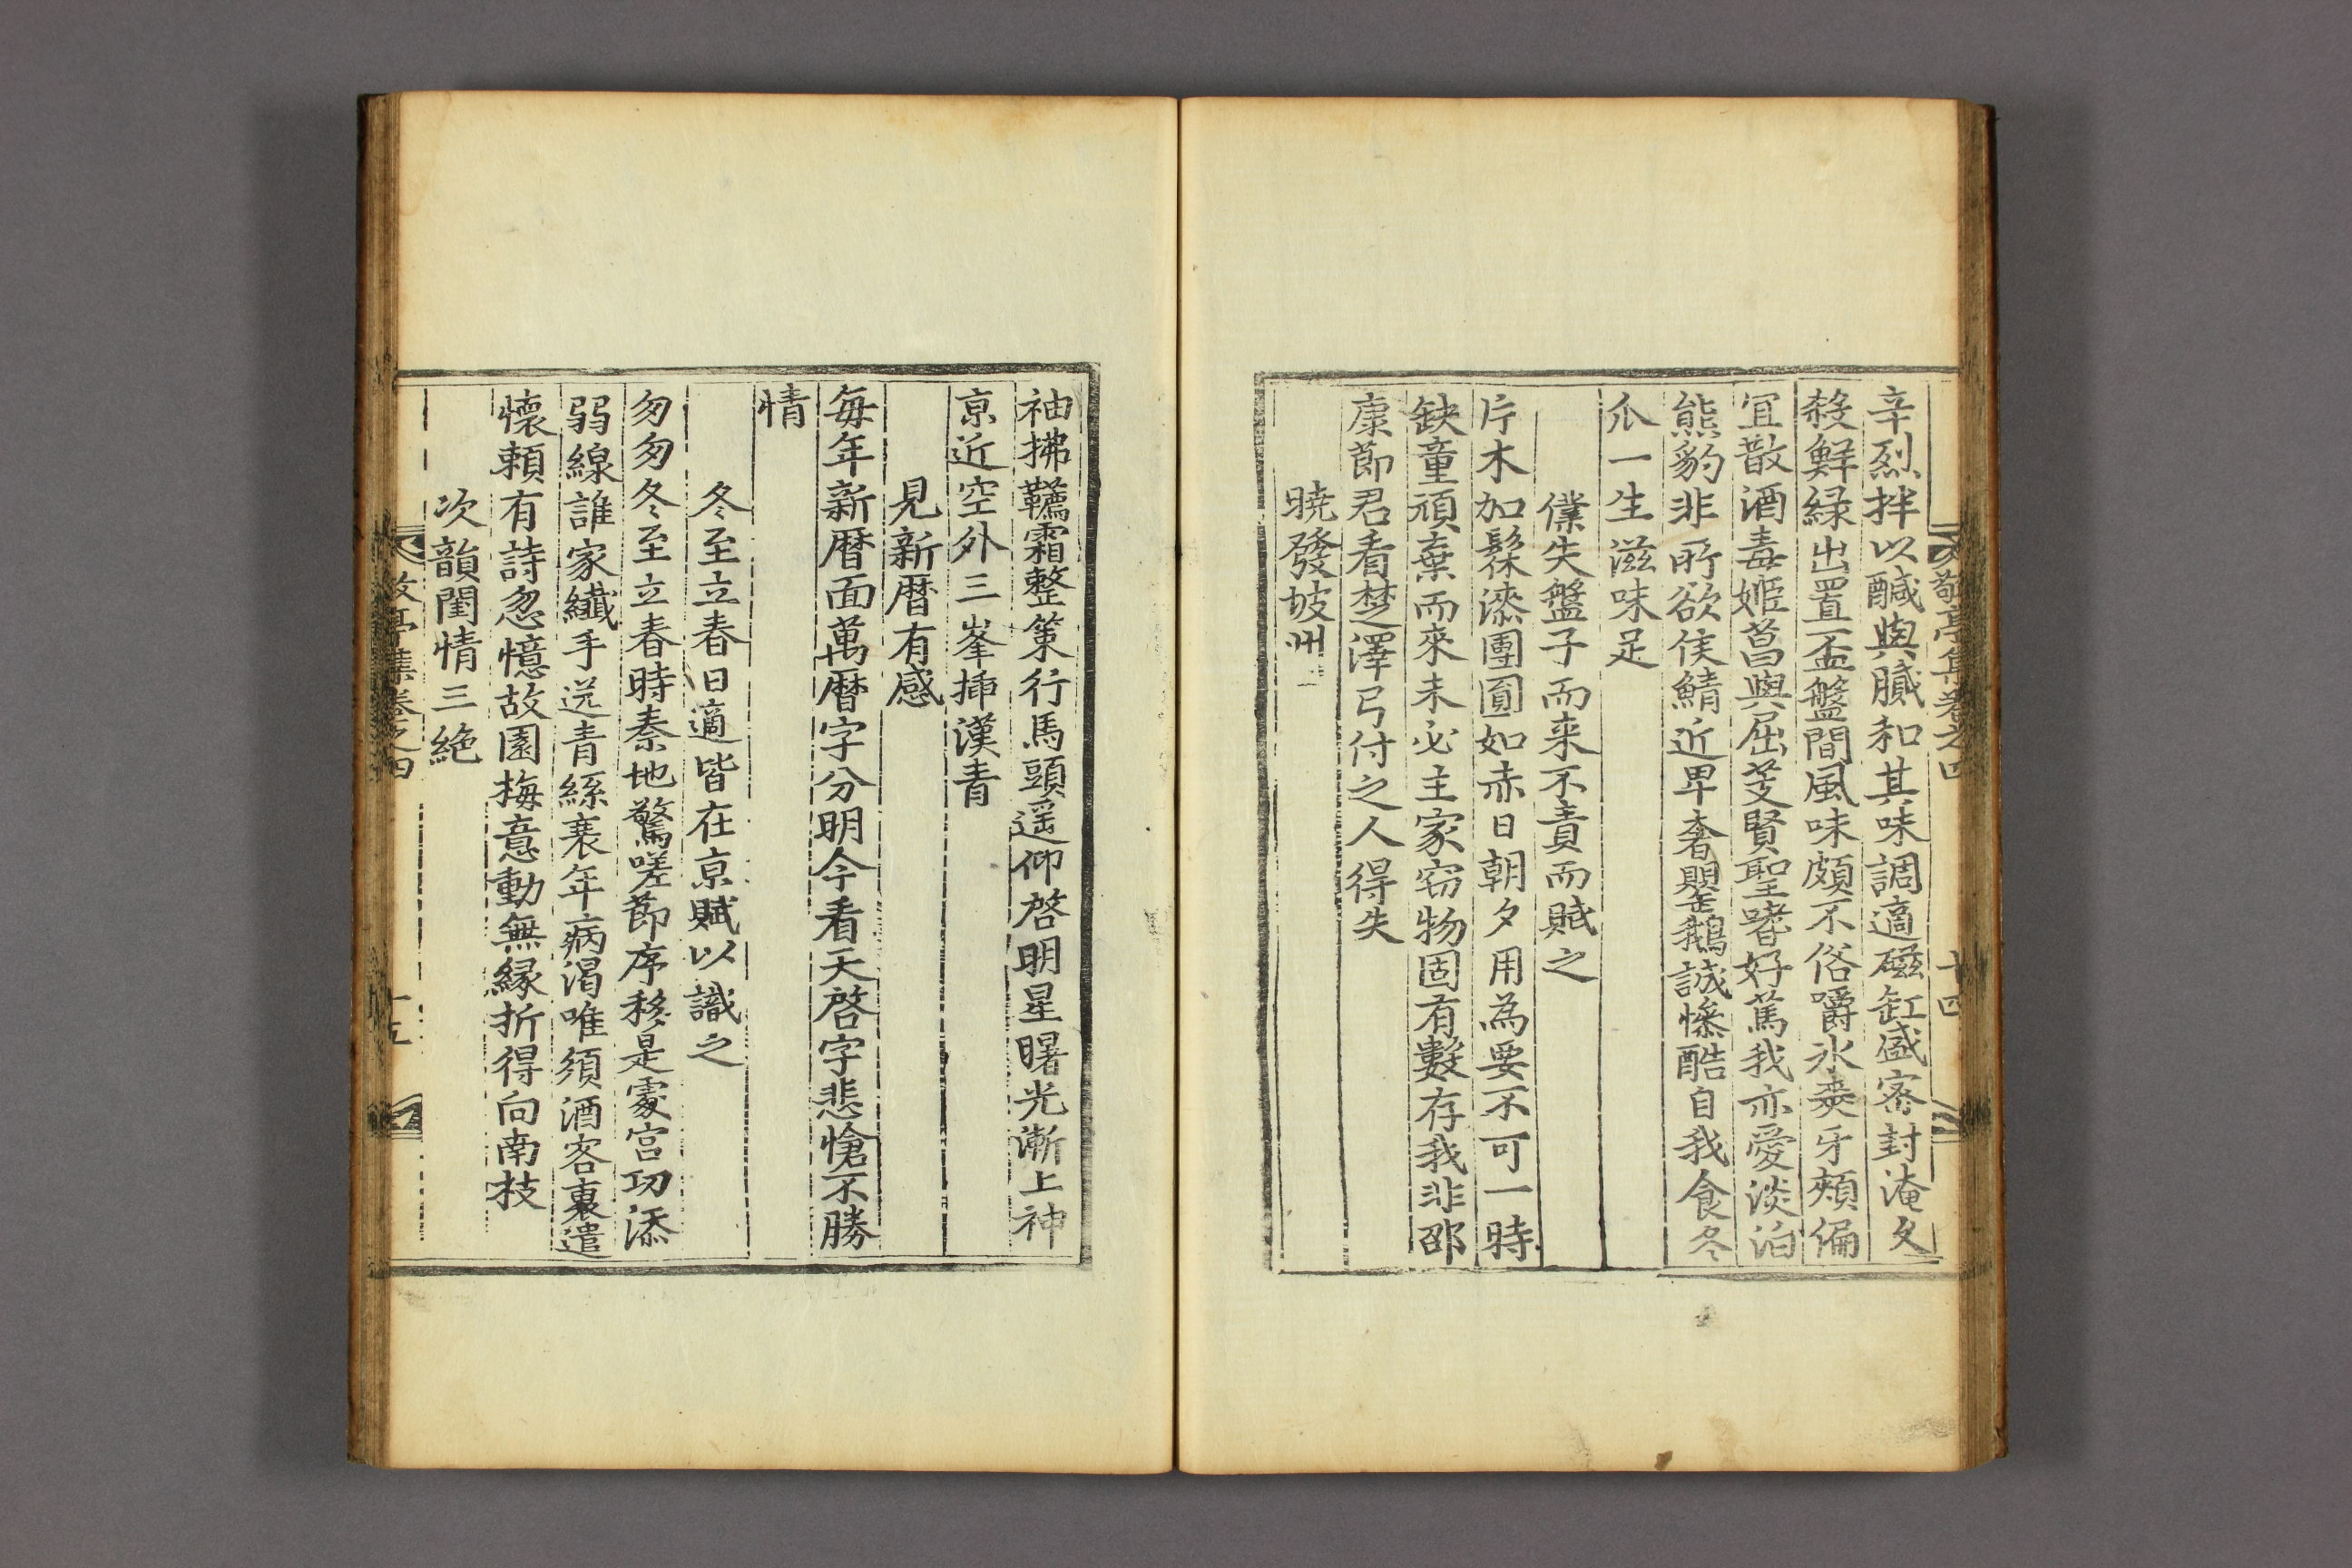 敬亭集卷之四 十四
辛烈拌以醎與膩和其味調適磁缸盛密封淹夂
殺鮮緑出置盃盤間風味頗不俗嚼氷爽牙頰偏
宜散酒毒姬菖與屈芰賢聖嗜好篤我亦愛淡泊
熊豹非所欲侯鯖近卑奢鵝誠慘酷自我食冬
瓜一生滋味足
僕失盤子而来不責而賦之
片木加髹漆團圓如赤日朝夕用為要不可一時
缺童頑棄而來未必主家窃物固有數存我非邵
康節君看楚澤弓付之人得失
曉發坡州
袖拂韉霜整策行馬頭遥仰啓明星曙光漸上神
京近空外三峯揷漢青
見新曆有感
每年新曆面萬曆字分明今看天啓字悲愴不勝
情
冬至立春日適皆在京賦以識之
匆匆冬至立春時秦地驚嗟節序移是處宫功添
弱線誰家纎手送青絲衰年病渴唯須酒客裏遣
懷頼有詩忽憶故園梅意動無縁折得向南枝
次韻閨情三絶
敬亭集卷之四 十五